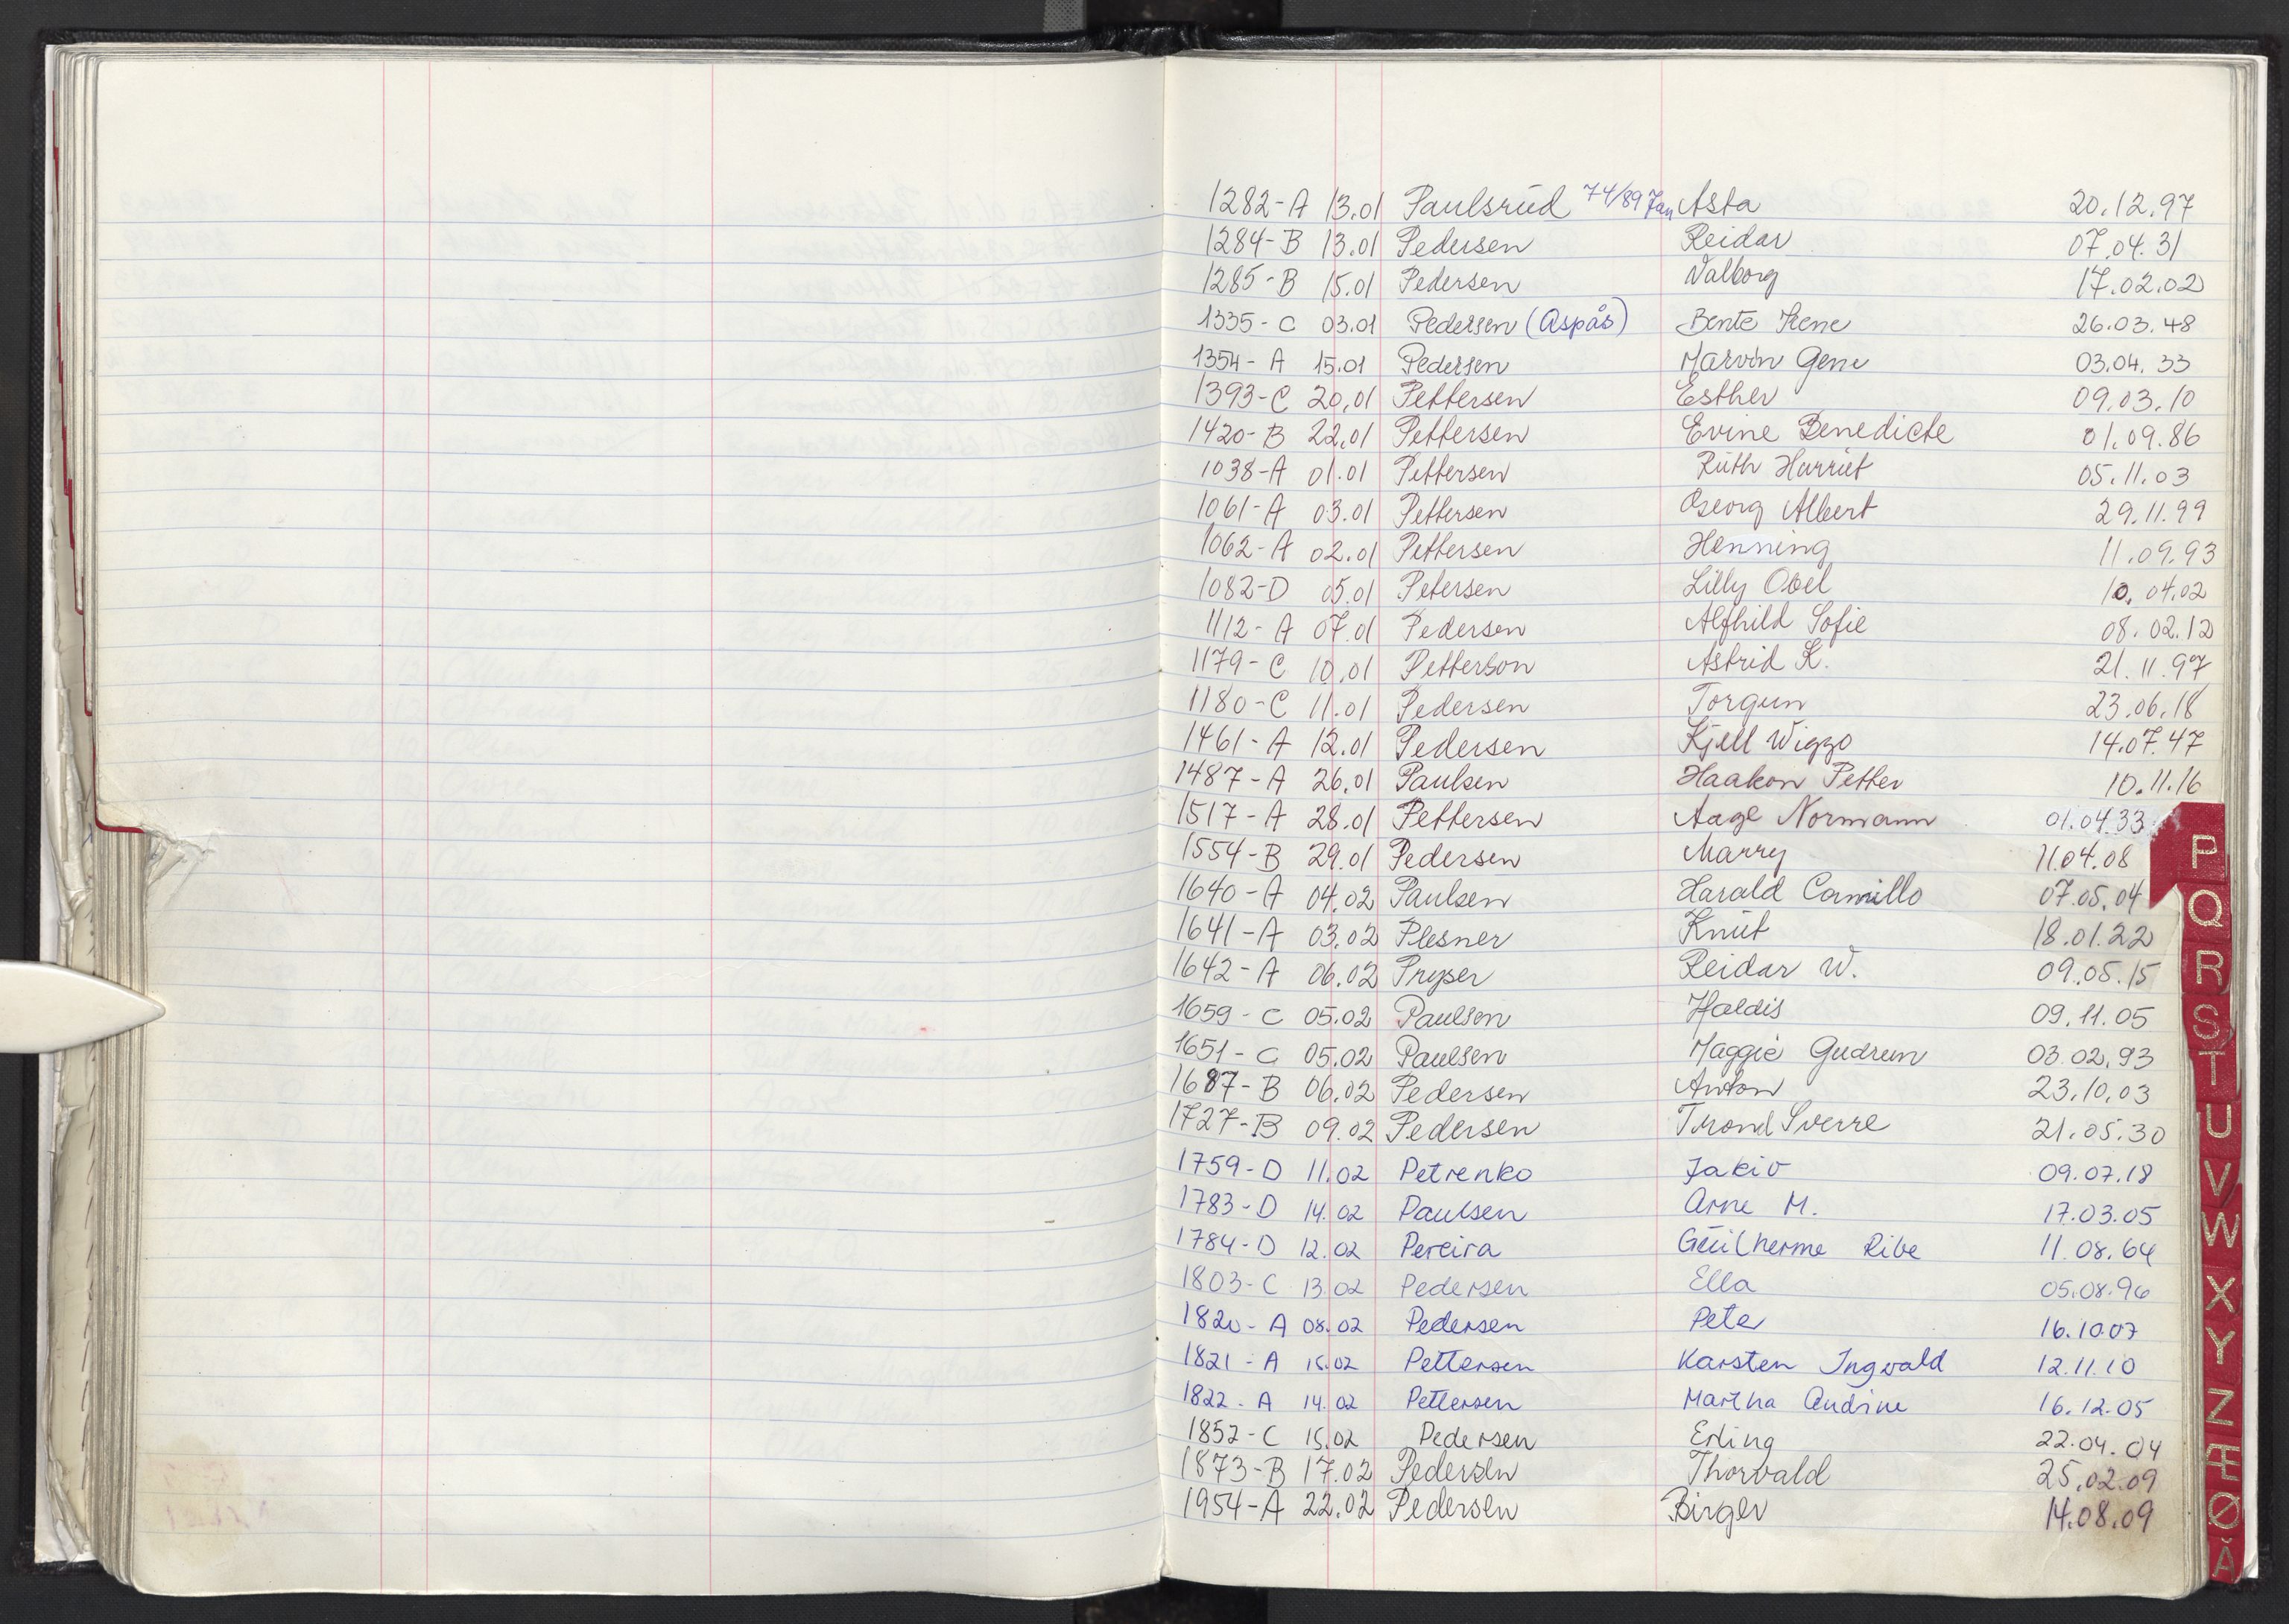 1282-A 13.01 Paulsrud 74/89 Jan Asta 20.12.97
1284-B 13.01 Pedersen Reidar 07.04.31
1285-B 15.01 Pedersen Valborg 17.02.02
1335-C 03.01 Pedersen (Aspås) Bente Irene 26.03.48
1354-A 15.01 Pedersen Marvin Gene 03.04.33
1393-C 20.01 Pettersen Esther 09.03.10
1420-B 22.01 Pettersen Evine Benedicte 01.09.86
1038-A 01.01 Pettersen Ruth Harriet 05.11.03
1061-A 03.01 Pettersen Georg Albert 29.11.99
1062-A 02.01 Pettersen Henning 11.09.93
1082-D 05.01 Petersen Lilly 10.04.02
1112-A 07.01 Pedersen Alfhild Sofie 08.02.12
1179-C 10.01 Petterson Astrid K. 21.11.97
1180-C 11.01 Pedersen Torgun 23.06.18
1461-A 12.01 Pedersen Kjell Wiggo 14.07.47
1487-A 26.01 Paulsen Haakon Petter 10.11.16
1517-A 28.01 Pettersen Aage Normann 01.04.33
1554-B 29.01 Pedersen Marry 11.04.08
P
1640-A 04.02 Paulsen Harald Camillo 07.05.04
Q
1641-A 03.02 Plesner Knut 18.01.22
1642-A 06.02 Pryser Reidar W. 09.05.15
R
1659-C 05.02 Paulsen Haldis 09.11.05
S
1651-C 05.02 Paulsen Maggie Gudrun 03.02.93
T
1687-B 06.02 Pedersen Anton 23.10.03
1727-B 09.02 Pedersen Trond Sverre 21.05.30
U
1759-D 11.02 Petrenko Jakiv 09.07.18
V
1783-D 14.02 Paulsen Arne M. 17.03.05
W
1784-D 12.02 Pereira Guilherme Ribe 11.08.64
1803-C 13.02 Pedersen Ella 05.08.96
X
1820-A 08.02 Pedersen Peter 16.10.07
Y
1821-A 15.02 Pettersen Karsten Ingvald 12.11.10
1822-A 14.02 Pettersen Martha Andrine 16.12.05
Z
1852-C 15.02 Pedersen Erling 22.04.04
Æ
1873-B 17.02 Pedersen Thorvald 25.02.09
1954-A 22.02 Pedersen Birger 14.08.09
Ø
Å